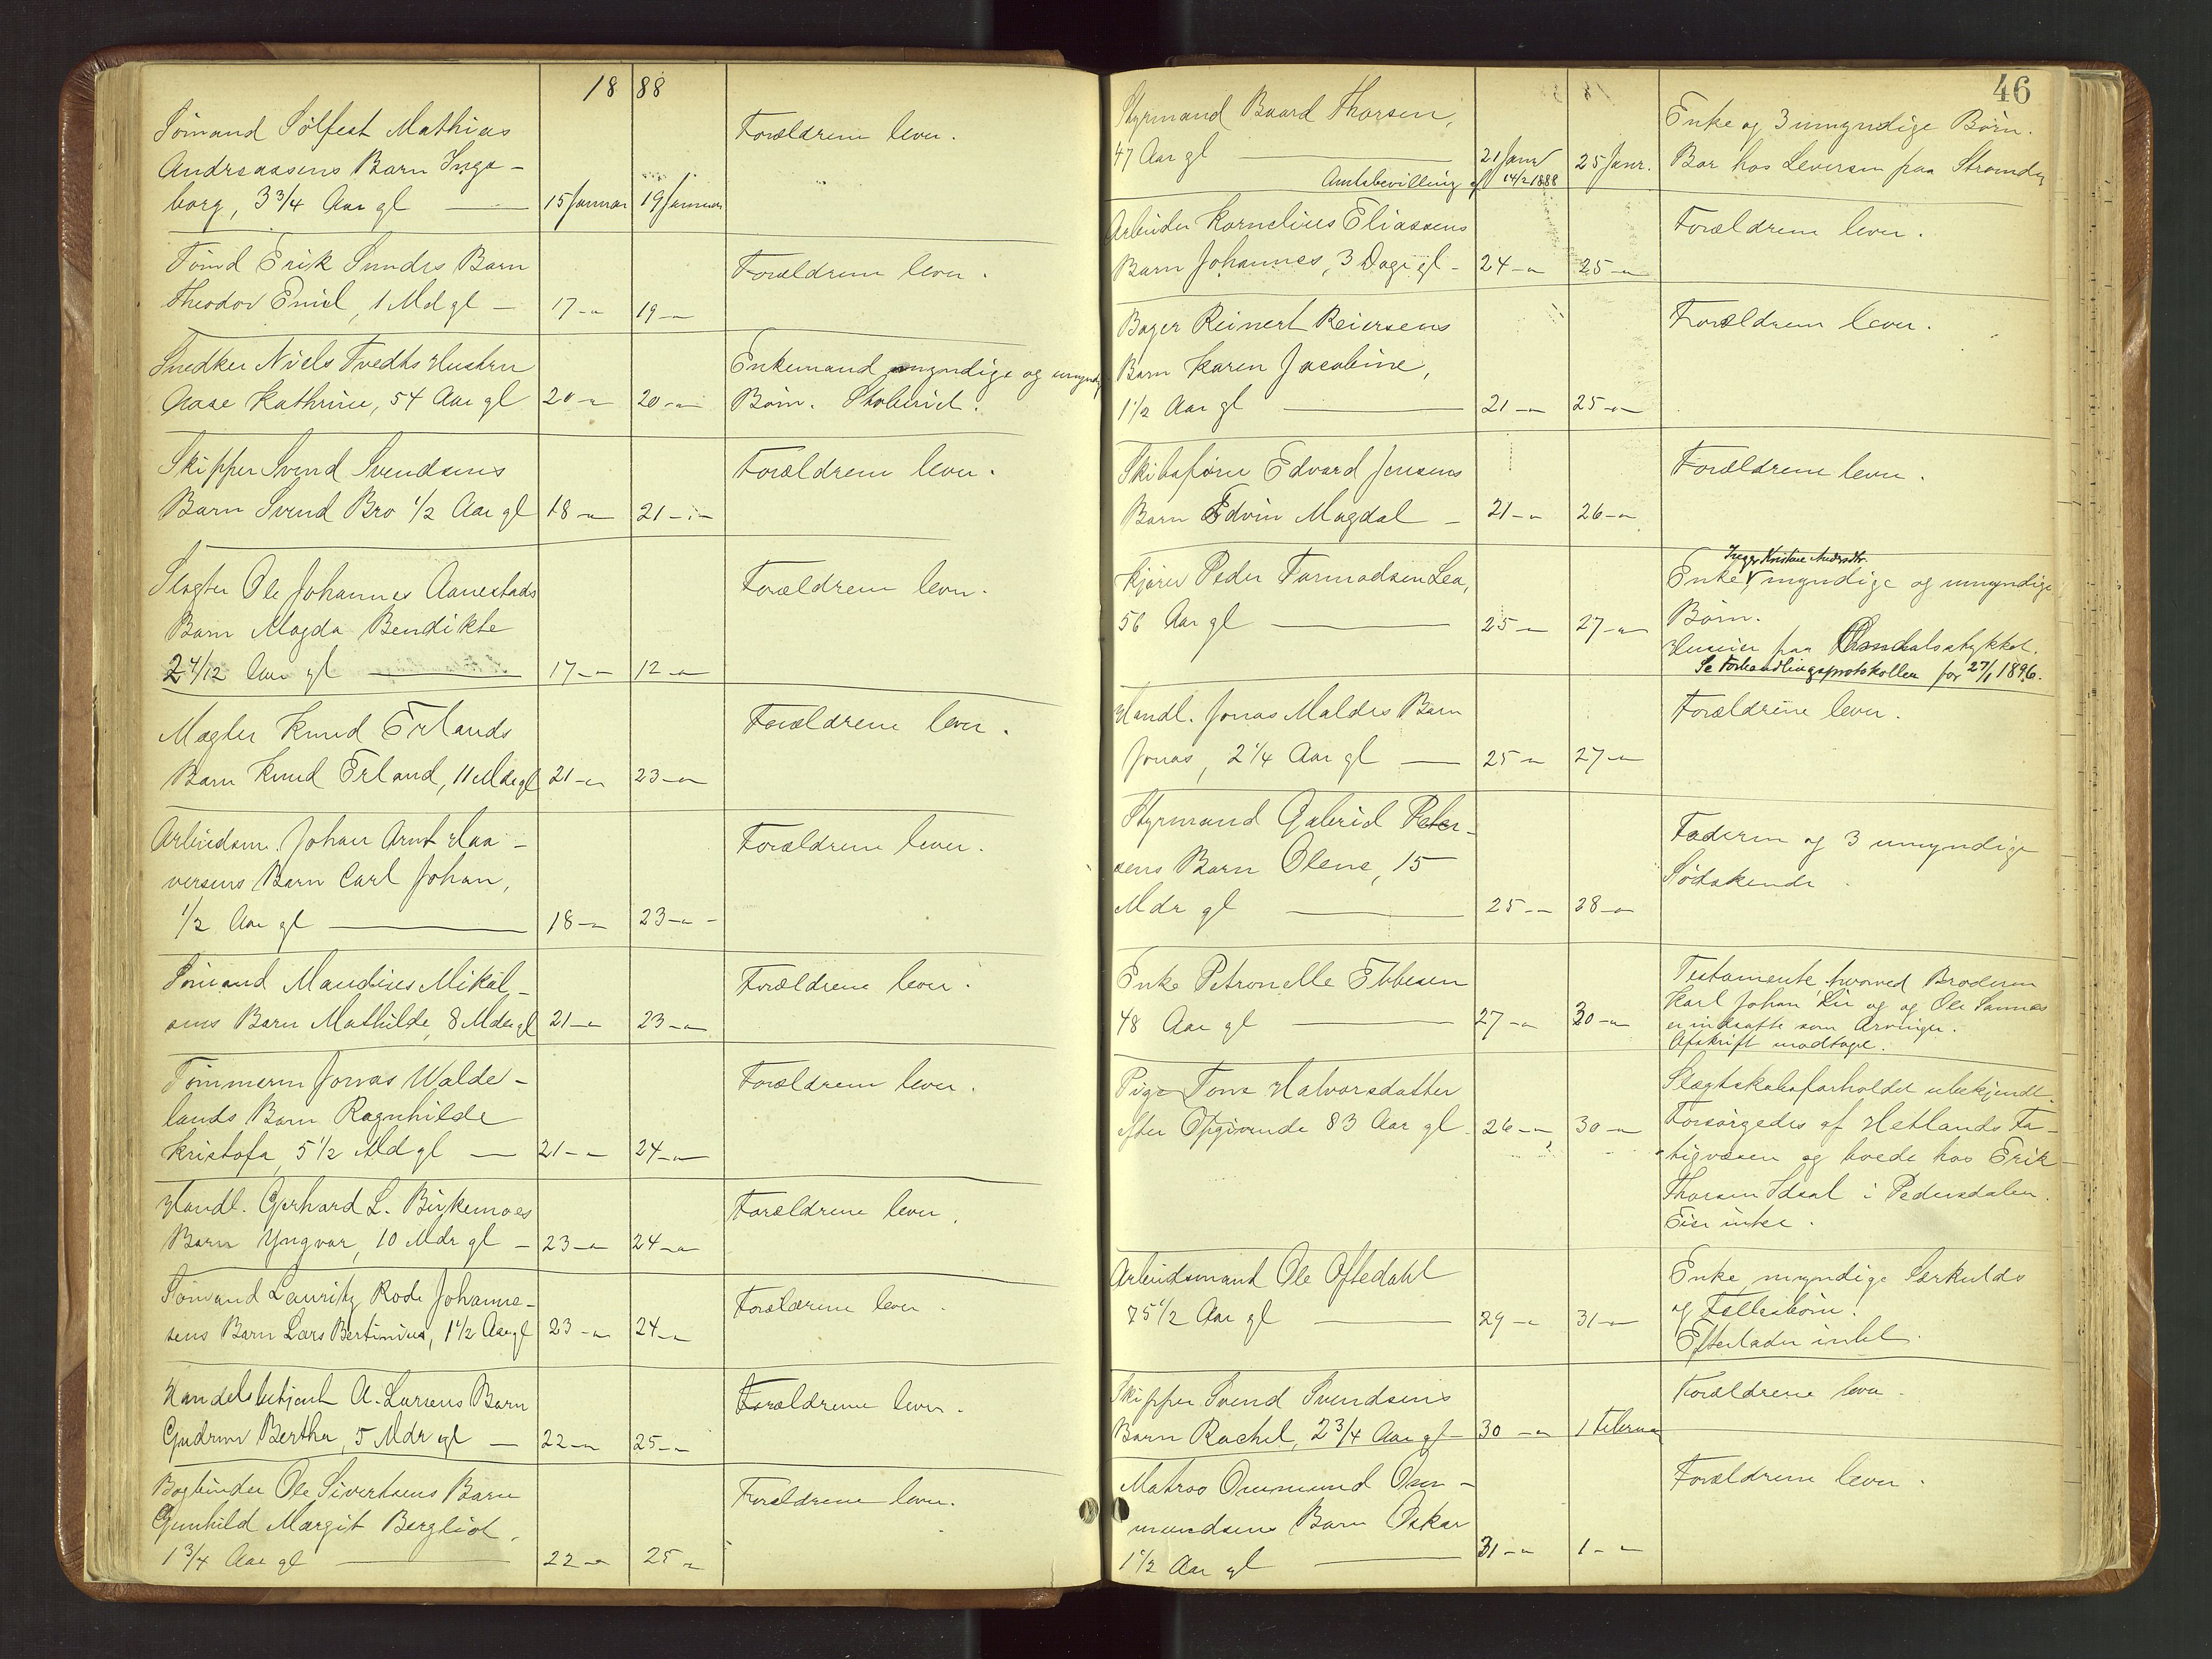 18 88
Sömand Sölfest Mathias
Andreassens Barn Inga-
borg, 3 3/4 Aar gl — 15 Januar 19 Januar
Forældrene lever.
Tömd Erik Sundes Barn
Theodor Emil, 1 Md gl — 17 -"- 19 -"-
Forældrene lever.
Snedker Niels Tvedts Hustru
Aase Kathrine, 54 Aar gl 20 -"- 20 -"-
Enkemand myndige og umyndg
Börn.
Skipper Svend Svendsens
Barn Svend Bro 1/2 Aar gl 18 -"- 21 -"-
Forældrene lever.
Slagter Ole Johannes Aanestads
Barn Magda Bendikte
2 4/12 Aar gl — 17 -"- 12 -"-
Forældrene lever.
Mægler Knud Erlands
Barn Knud Erland, 11 Mdr gl 21 -"- 23 -"-
Forældrene lever.
Arbeidsm. Johan Arnt Haa-
versens Barn Carl Johan,
1/2 Aar gl — 18 -"- 23 -"-
Forældrene lever.
Sömand Maudius Mikal-
sens Barn Mathilde, 8 Mdr gl 21 -"- 23 -"-
Forældrene lever.
Tömmerm Jonas Walde-
lands Barn Ragnhilde
Kristofa, 5 1/2 Md gl — 21 -"- 24 -"-
Forældrene lever.
Handl. Gerhard L. Birkemoes
Barn Yngvar, 10 Mdr gl — 23 -"- 24 -"-
Forældrene lever.
Sömand Lauritz Rode Johanne-
sens Barn Lars Bertinius, 1 1/2 Aar gl 23 -"- 24 -"-
Forælærene lever.
Handelsbetjent A. Larsens Barn
Gudrun Bertha, 5 Mdr gl — 22 -"- 25 -"-
Forældrene lever.
Bogbinder Ole Sivertsens Barn
Gunhild Margit Bergliot,
1 3/4 Aar gl — 22 -"- 25 -"-
Forældrene lever.
46
Styrmand Baard Thorsen,
47 Aar gl — 21 Janr 25 Janr.
Amtsbevilling af 14/2 1888
Enke og 3 umyndige Börn.
Bor hos Leversen paa
Arbeider Kornelius Eliassens
Barn Johannes, 3 Dage gl — 24 -"- 25 -"-
Forældrene lever.
Bager Reinert Reiersens
Barn Karen Jacobine,
1 1/2 Aar gl — 21 -"- 25 -"-
Forældrene lever.
Skibsförer Edvard Jensens
Barn Edvin Magdal — 21 -"- 26 -"-
Forældrene lever.
Kjörer Peder Tormodsen Lea,
56 Aar gl — 25 -"- 27 -"-
Inger Kristine Andrsdtr.
Enke myndige og umyndige
Börn.
Huseier paa
Se Forhandlingsprotokollen for 27/1 1896.
Handl. Jonas Maldes Barn
Jonas, 2 1/4 Aar gl — 25 -"- 27 -"-
Forældrene lever.
Styrmand Gabriel Peter-
sens Barn Olene, 15
Mdr gl — 25 -"- 28 -"-
Faderen og 3 umyndige
Södskende
Enke Petronelle Ebbesen
48 Aar gl — 27 -"- 30 -"-
Testamente hvorved Broderen
Karl Johan Lie og og Ole Sannes
er indsatte som Arvinger.
Afskrift modtaget.
Pige Tone Halvorsdatter
efter Opgivende 83 Aar gl 26 -"- 30 -"-
Slægtskabsforholdet ubekjendt.
Forsörgedes af Hetlands Fa-
tigvæsen og boede hos Erik
Thorsen Idsal i Pedersdalen.
Eier intet.
Arbeidsmand Ole Oftedahl
75 1/2 Aar gl — 29 -"- 31 -"-
Enke myndige Særkulds
og Fællesbörn.
Efterlader intet.
Skipper Svend Svendsens
Barn Rachel, 2 3/4 Aar gl — 30 -"- 1 Februar
Forældrene lever.
Matros Ommund Om-
mundsens Barn Oskar
1 1/2 Aar gl — 31 -"- 1 -"-
Forældrene lever.